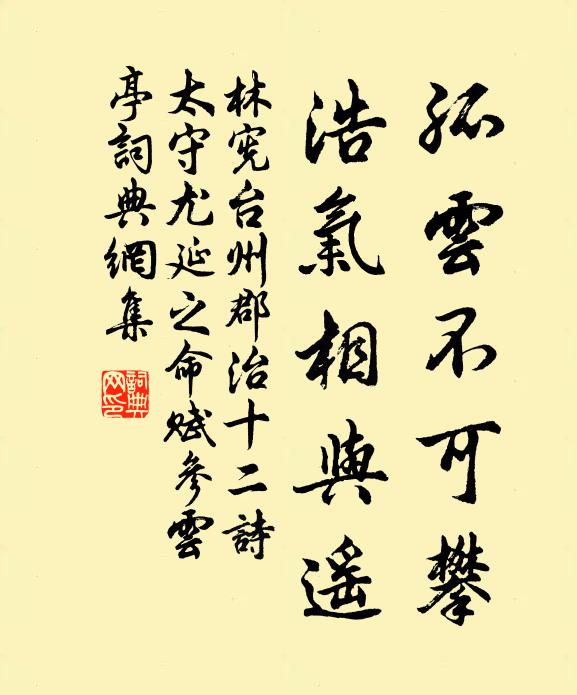 孤雲不可攀
浩氣相與遥
林宪台州郡治十二詩
太守尤延之命赋參雲
亭詞典網集
詞典
网印